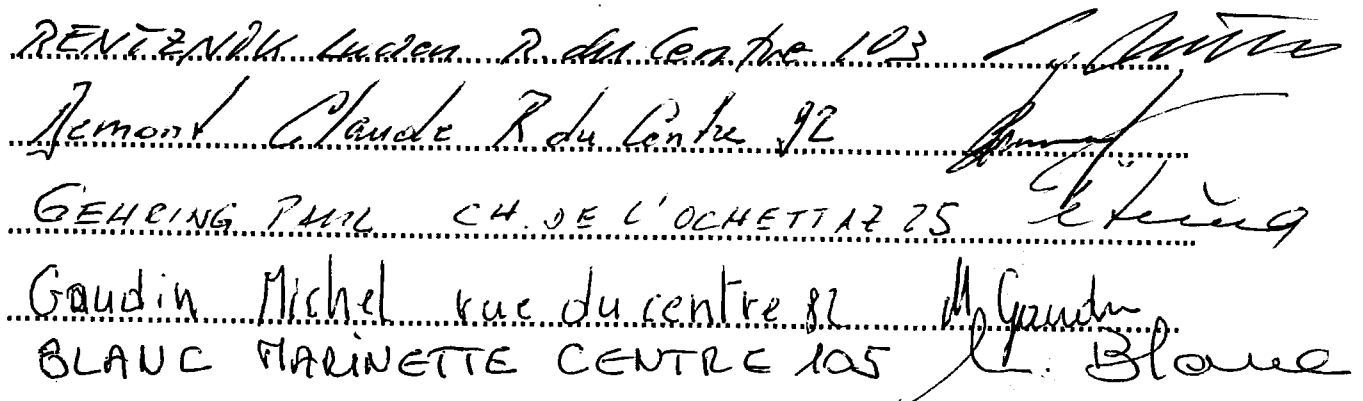 RENTZNIK Lucien R. du Centre 103
Demont Claude R du Centre 92
GEHRING PAUL CH. DE L'OCHETTAZ 25
Gaudin Michel rue du centre 82 M Gaudin
BLANC MARINETTE CENTRE 105 M. Blanc